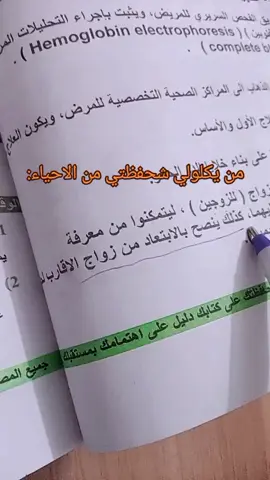 الفحص السريري للمريض، ويثبت باجراء التحليلات
( Hemoglobin electrophoresis ) .
( complete bl
الذهاب الى المراكز الصحية التخصصية للمرض، ويكون العلاج
لاج الأول والأساس.
على بناء خلايا الدم
من يكلولي شحفظتي من الاحياء:
زواج ( للزوجين ) ، ليتمكنوا من معرفة
كذلك ينصح بالابتعاد من زواج الاقارب
على كتابك دليل على اهتمامك بمستقبلك
جميع
1
2)